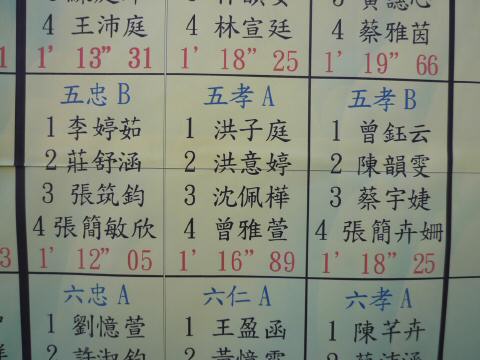 4 王沛庭
4 林宣廷
4 蔡雅茵
1' 13" 31
1' 18" 25
1' 19" 66
五忠 B
五孝 A
五孝 B
1 李婷茹
1 洪子庭
1 曾鈺云
2 莊舒涵
2 洪意婷
2 陳韻雯
3 張筑鈞
3 沈佩樺
3 蔡宇婕
4 張簡敏欣
4 曾雅萱
4 張簡卉姍
3
1' 12" 05
1' 16" 89
1' 18" 25
六忠 A
六仁 A
六孝 A
1 劉憶萱
1 王盈函
1 陳芊卉
2 許淑鈞
2
2